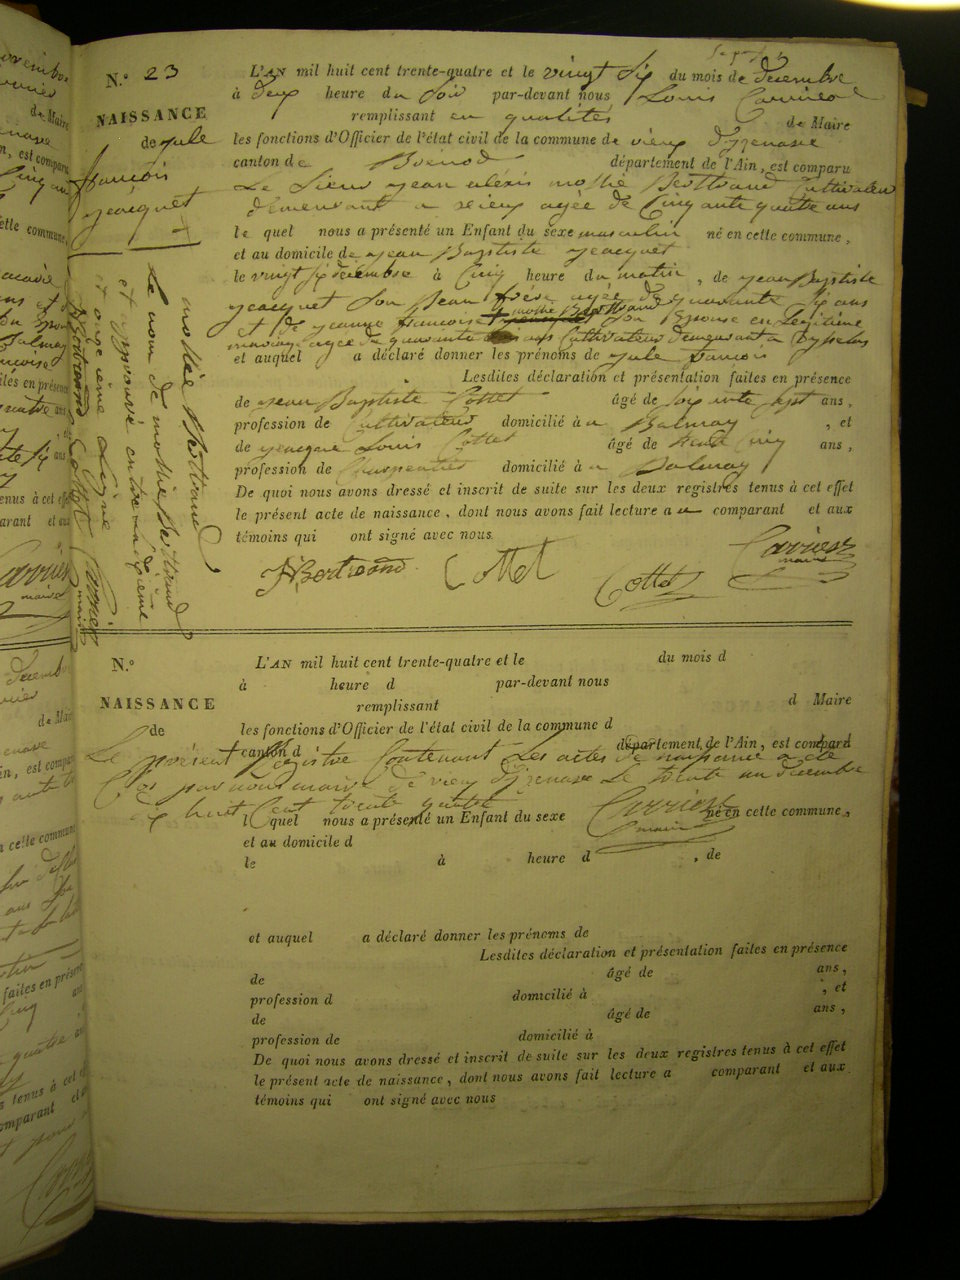 N.° 23
NAISSANCE
de jule
francois
jeacquet
L'AN mil huit cent trente-quatre et le vingt six du mois de décembre
à deux heure du soir par-devant nous Louis Carrier
remplissant en qualités de Maire
les fonctions d'Officier de l'état civil de la commune de vieux d'yzenave
canton de Brenod département de l'Ain, est comparu
Le Sieur jean aléxis mostie Berttrand Cultivateur
demeurant a vieux agée de Cinquante quatre ans
le quel nous a présenté un Enfant du sexe masculin né en cette commune,
et au domicile de jean Baptiste jeacquet
le vingt six décembre à Cinq heure du matin, de jean Baptiste
jeacquet son Beau frère agée de quarante six ans
et de jeanne francoise mostie Berttrand son Epouse en Légitime
mariage agée de quarante ans Cultivateurs demeurant a
et auquel a déclaré donner les prénoms de jule francois
Lesdites déclaration et présentation faites en présence
de jean Baptiste Cottet âgé de soixante sept ans,
profession de Cultivateur domicilié à a Balmay, et
de jeacque Louis Cottet âgé de trente Cinq ans,
profession de Charpentier domicilié à a Balmay
De quoi nous avons dressé et inscrit de suite sur les deux registres tenus à cet effet
le présent acte de naissance, dont nous avons fait lecture a u comparant et aux
témoins qui ont signé avec nous.
JABertrand Cottet Cottet Carrier
maire
mostie Berttrand
Le nom de mostie Berttrand
et approuvé entre la dixième
et onzième Ligne
JABertrand Cottet Carrier
maire
N.°
NAISSANCE
de
L'AN mil huit cent trente-quatre et le du mois d
à heure d par-devant nous
remplissant d Maire
les fonctions d'Officier de l'état civil de la commune d
canton d département de l'Ain, est comparu
Le présent Registre Contenant Les actes de naissance a été
Clos par nous maire de vieux d'yzenave Le trente un décembre
dix huit Cent trente quatre
Carrier
maire
l quel nous a présenté un Enfant du sexe né en cette commune,
et au domicile d
le à heure d , de
et auquel a déclaré donner les prénoms de
Lesdites déclaration et présentation faites en présence
de âgé de ans,
profession d domicilié à , et
de âgé de ans,
profession de domicilié à
De quoi nous avons dressé et inscrit de suite sur les deux registres tenus à cet effet
le présent acte de naissance, dont nous avons fait lecture a comparant et aux
témoins qui ont signé avec nous